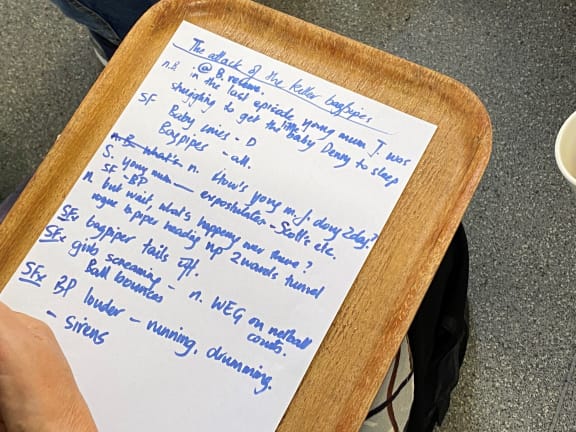 The attack of the killer bagpipes
n.B @ B. review.
in the last episode young mum J. was
struggling to get the little baby Denny to sleep
SF Baby cries - D
Bagpipes - all.
n. B what's n. How's yong m. J. doing 2day?
S. yong mum — expostulates - Scott's etc.
SF - BP
n. but wait, what's happeng over there?
rogue bagpiper heading up 2wards tunnel
SFx bagpiper tails
SFx girls screaming - n. WEG on netball
Ball bounces courts.
SFx BP louder - running, drumming.
- sirens